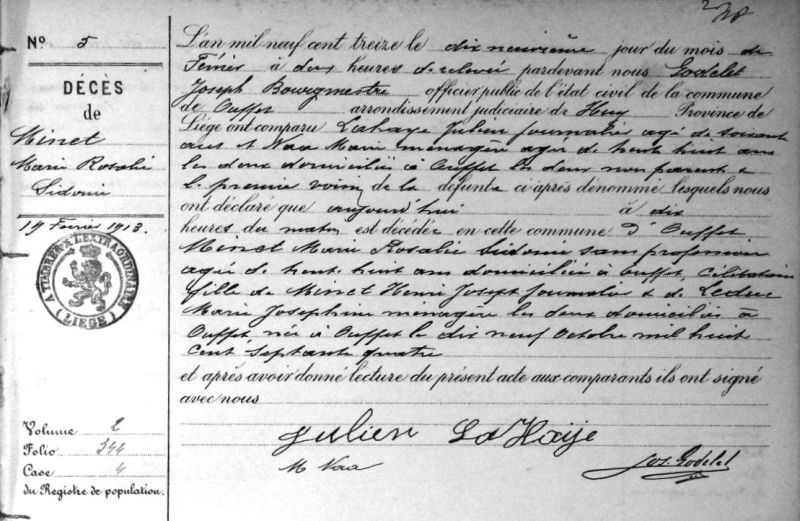 N° 5
DÉCÈS
de
Minet
Marie Rosalie
Sidonie
19 Fevrier 1913.
A TIMBRER A L'EXTRAORDINAIRE
(LIÉGE)
Volume 2
Folio 344
Case 4
du Registre de population.
28
L'an mil neuf cent treize le dix neuvième jour du mois de
Février à deux heures de relevée pardevant nous Godelet
Joseph Bourgmestre officier public de l'état civil de la commune
de Ouffet arrondissement judiciaire de Huy Province de
Liége ont comparu Lahaye Julien journalier agé de soixante
ans et Naa Marie ménagère agée de trente huit ans
les deux domiciliés à Ouffet les deux non parents
le premier voisin de la défunte ci-après dénommé lesquels nous
ont déclaré que aujourd'hui à dix
heures du matin est décédée en cette commune d'Ouffet
Minet Marie Rosalie Sidonie sans profession
agée de trente huit ans domiciliée à Ouffet célibataire
fille de Minet Henri Joseph journalier et de Leduc
Marie Josephine ménagère les deux domiciliés à
Ouffet, née à Ouffet le dix neuf Octobre mil huit
cent septante quatre
et après avoir donné lecture du présent acte aux comparants ils ont signé
avec nous
Julien La Haije
M Naa
Jos. Godelet